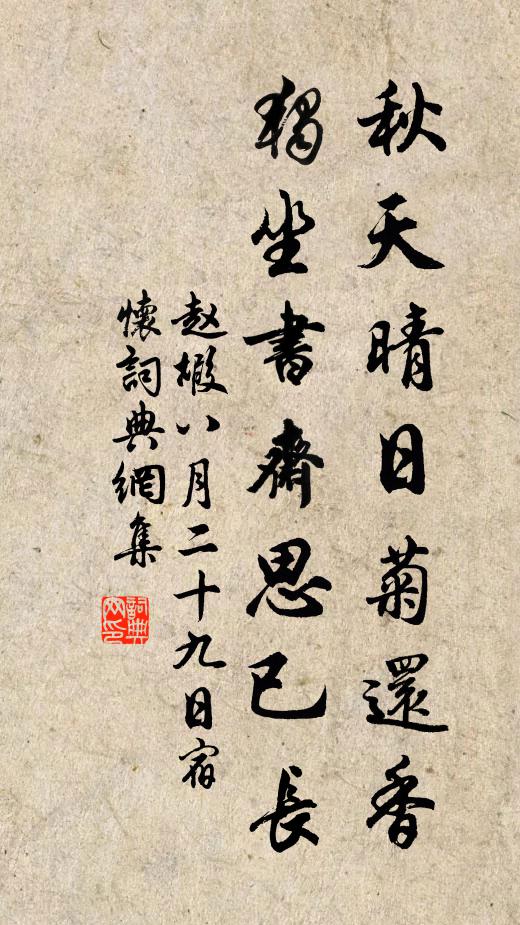 秋天晴日菊還香
獨坐書齋思已長
赵嘏八月二十九日宿
懷詞典網集
詞典
网印